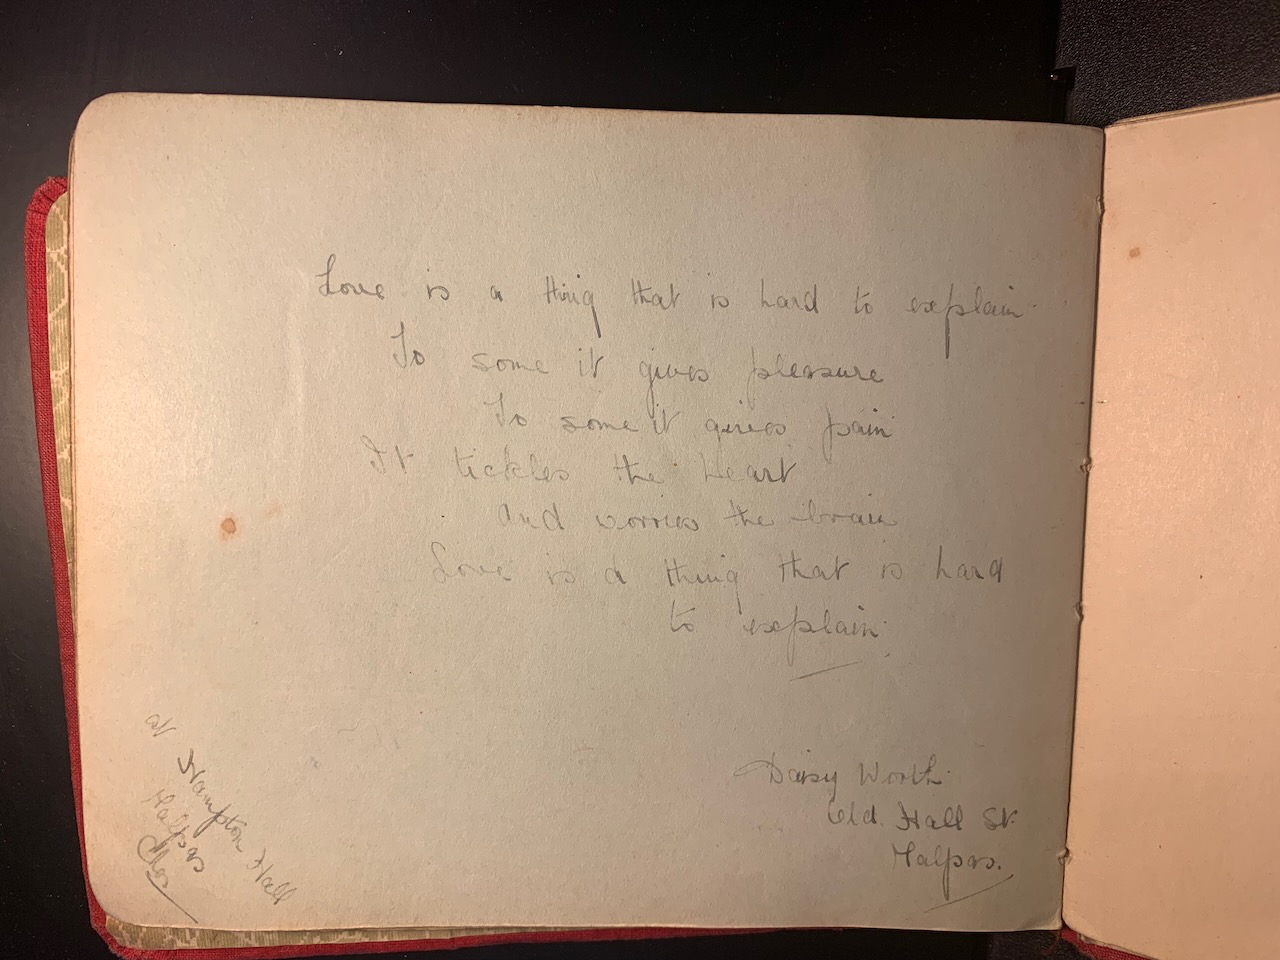 Love is a thing that is hard to explain.
To some it gives pleasure
To some it gives pain
It tickles the heart
and worries the brain
Love is a thing that is hard
to explain.
Daisy Worth.
Old Hall St.
Malpas.
at Hampton Hall
Malpas
Ches